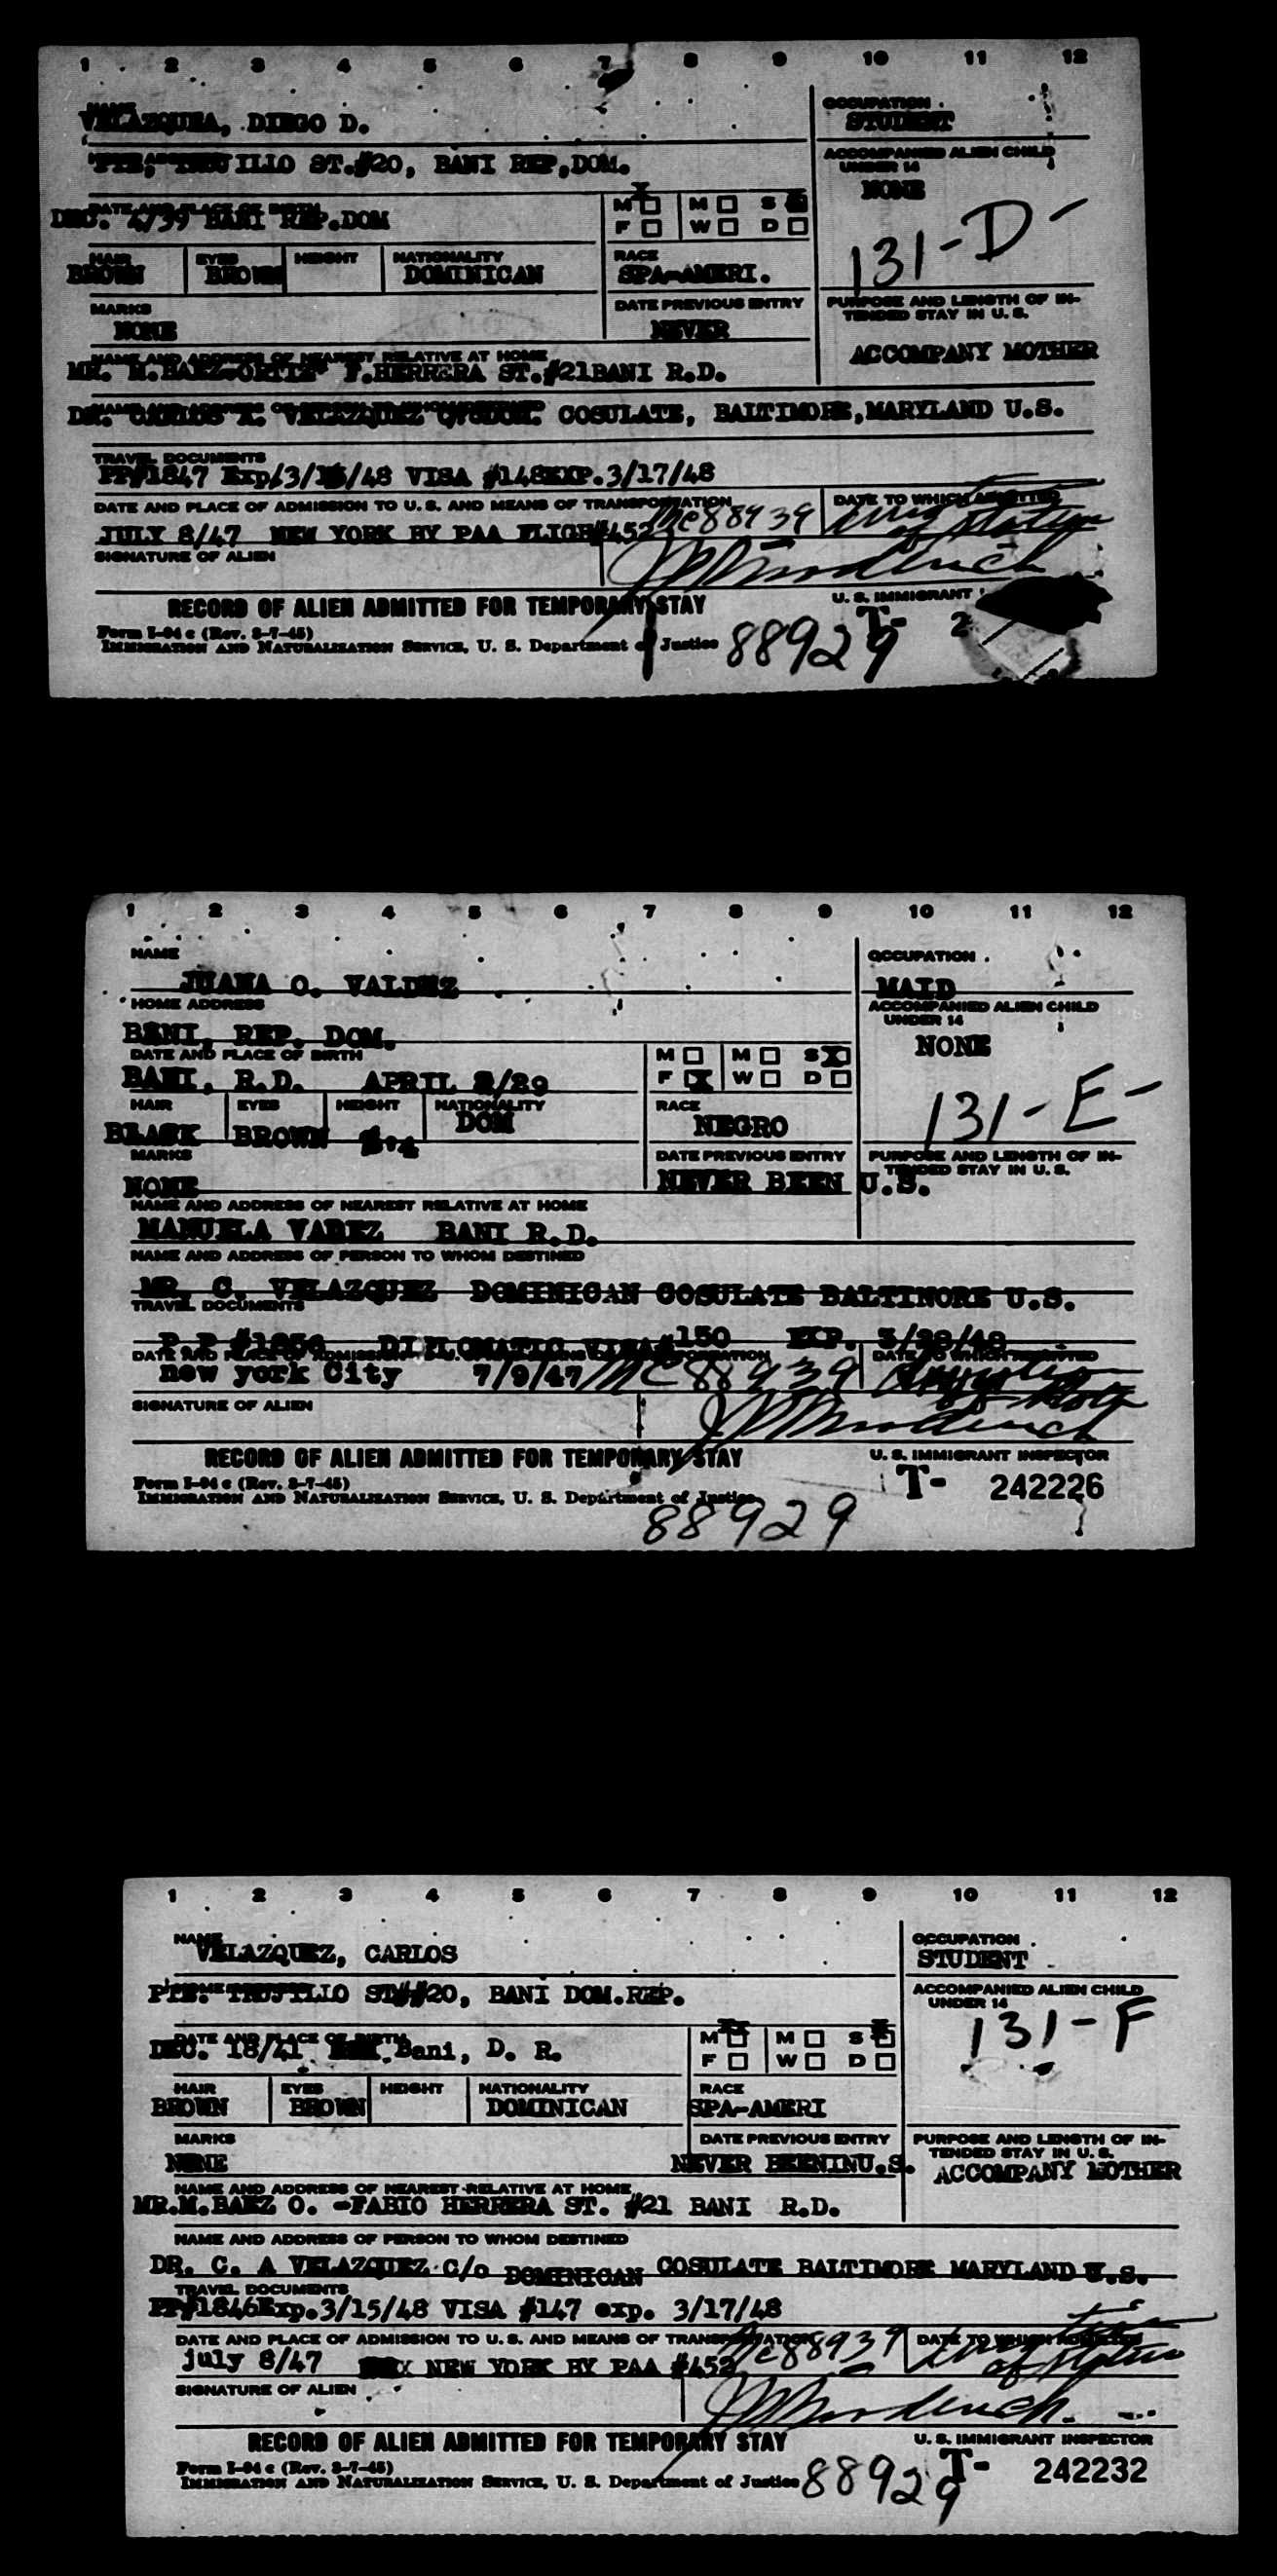 1 2 3 4 5 6 7 8 9 10 11 12
NAME OCCUPATION
VELAZQUEA, DIEGO D. STUDENT
ACCOMPANIED ALIEN CHILD
UNDER 14
ILLO ST.#20, BANI REP,DOM. NONE
DATE AND PLACE OF BIRTH M M S
BANI REP.DOM F W D
131-D-
HAIR EYES HEIGHT NATIONALITY RACE
BROWN BROWN DOMINICAN SPA-AMERI.
MARKS DATE PREVIOUS ENTRY PURPOSE AND LENGTH OF IN-
TENDED STAY IN U. S.
NONE NEVER
NAME AND ADDRESS OF NEAREST RELATIVE AT HOME ACCOMPANY MOTHER
MR. M.BAEZ-ORTIZ F.HERRERA ST.#21BANI R.D.
DR. CARLOS A. VELAZQUEZ COSULATE, BALTIMORE,MARYLAND U.S.
TRAVEL DOCUMENTS
PP#1847 Exp. VISA #148EXP.3/17/48
DATE AND PLACE OF ADMISSION TO U. S. AND MEANS OF TRANSPORTATION DATE TO WHICH ADMITTED
JULY 8/47 NEW YORK BY PAA #452 88939
SIGNATURE OF ALIEN
RECORD OF ALIEN ADMITTED FOR TEMPORARY STAY U. S. IMMIGRANT
Form I-94 c (Rev. 3-7-45) T- 2
IMMIGRATION AND NATURALIZATION SERVICE, U. S. Department of Justice 88929
1 2 3 4 5 6 7 8 9 10 11 12
NAME OCCUPATION
JUANA O. VALDEZ MAID
HOME ADDRESS ACCOMPANIED ALIEN CHILD
UNDER 14
BANI, REP. DOM. NONE
DATE AND PLACE OF BIRTH M M S
BANI, R.D. APRIL F W D
131-E-
HAIR EYES HEIGHT NATIONALITY RACE
BLASK BROWN DOM NEGRO
MARKS DATE PREVIOUS ENTRY PURPOSE AND LENGTH OF IN-
TENDED STAY IN U. S.
NONE NEVER BEEN U.S.
NAME AND ADDRESS OF NEAREST RELATIVE AT HOME
MANUELA VADEZ BANI R.D.
NAME AND ADDRESS OF PERSON TO WHOM DESTINED
MR. C. VELAZQUEZ DOMINICAN COSULATE BALTINORE U.S.
TRAVEL DOCUMENTS
P P DIPLOMATIC VISA# 150 EXP.
DATE AND PLACE OF ADMISSION DATE TO WHICH ADMITTED
new york City 7/9/47 88939
SIGNATURE OF ALIEN
RECORD OF ALIEN ADMITTED FOR TEMPORARY STAY U. S. IMMIGRANT INSPECTOR
Form I-94 c (Rev. 3-7-45) T- 242226
IMMIGRATION AND NATURALIZATION SERVICE, U. S. Department of Justice
88929
1 2 3 4 5 6 7 8 9 10 11 12
NAME OCCUPATION
VELAZQUEZ, CARLOS STUDENT
ACCOMPANIED ALIEN CHILD
UNDER 14
PTE. TRUJILLO ST##20, BANI DOM.REP. 131-F
DATE AND PLACE OF BIRTH M M S
DEC. 18/41 Bani, D. R. F W D
HAIR EYES HEIGHT NATIONALITY RACE
BROWN BROWN DOMINICAN SPA-AMERI
MARKS DATE PREVIOUS ENTRY PURPOSE AND LENGTH OF IN-
TENDED STAY IN U. S.
NONE NEVER BEENINU.S. ACCOMPANY MOTHER
NAME AND ADDRESS OF NEAREST RELATIVE AT HOME
MR.M.BAEZ O. -FABIO HERRERA ST. #21 BANI R.D.
NAME AND ADDRESS OF PERSON TO WHOM DESTINED
DR. C. A VELAZQUEZ c/o DOMINICAN COSULATE BALTIMORE MARYLAND U.S.
TRAVEL DOCUMENTS
PP#1846Exp.3/15/48 VISA #147 exp. 3/17/48
DATE AND PLACE OF ADMISSION TO U. S. AND MEANS OF TRANSPORTATION DATE TO WHICH ADMITTED
july 8/47 NEW YORK BY PAA #452 88939
SIGNATURE OF ALIEN
RECORD OF ALIEN ADMITTED FOR TEMPORARY STAY U. S. IMMIGRANT INSPECTOR
Form I-94 c (Rev. 3-7-45) T- 242232
IMMIGRATION AND NATURALIZATION SERVICE, U. S. Department of Justice 88929